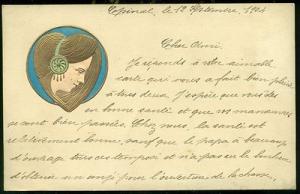 Epinal, le 12 Septembre, 1904
Cher Ami.
Je réponds à votre aimable
carte qui nous a fait bien plaisir
à tous deux, j'espère que vous êtes
en bonne santé et que vos manœuvres
se sont bien passées. Chez nous, la santé est
relativement bonne, sauf que le papa a beaucoup
d'ouvrage ces temps-ci et n'a pas eu le bonheur
d'obtenir un congé pour l'ouverture de la chasse,